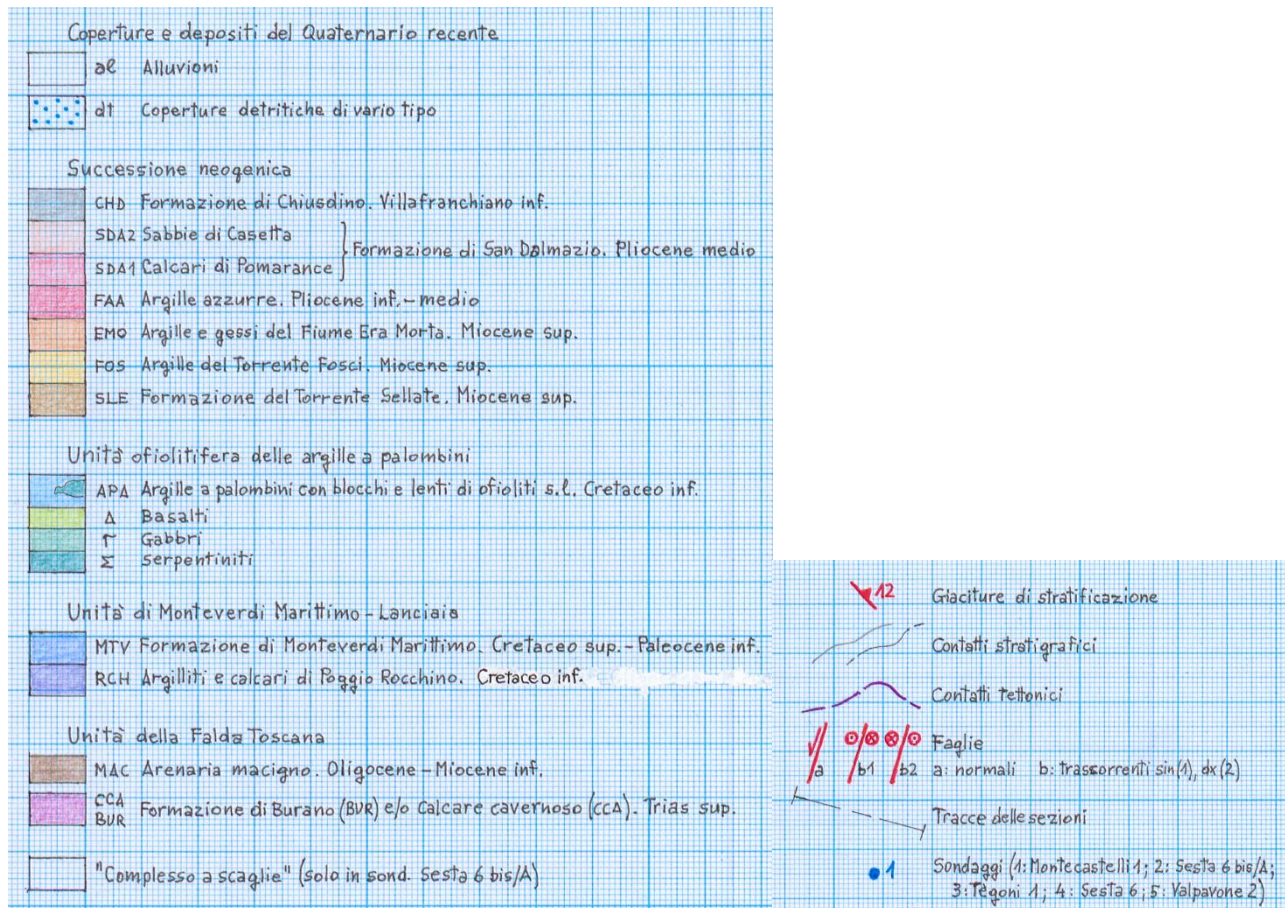 Coperture e depositi del Quaternario recente
al Alluvioni
dt Coperture detritiche di vario tipo
Successione neogenica
CHD Formazione di Chiusdino. Villafranchiano inf.
SDA2 Sabbie di Casetta
Formazione di San Dalmazio. Pliocene medio
SDA1 Calcari di Pomarance
FAA Argille azzurre. Pliocene inf.-medio
EMO Argille e gessi del Fiume Era Morta. Miocene sup.
FOS Argille del Torrente Fosci. Miocene sup.
SLE Formazione del Torrente Sellate. Miocene sup.
Unità ofiolitifera delle argille a palombini
APA Argille a palombini con blocchi e lenti di ofioliti s.l. Cretaceo inf.
Δ Basalti
Γ Gabbri
Σ Serpentiniti
Unità di Monteverdi Marittimo - Lanciaia
MTV Formazione di Monteverdi Marittimo. Cretaceo sup.- Paleocene inf.
RCH Argilliti e calcari di Poggio Rocchino. Cretaceo inf.
Unità della Falda Toscana
MAC Arenaria macigno. Oligocene - Miocene inf.
CCA
BUR Formazione di Burano (BUR) e/o Calcare cavernoso (CCA). Trias sup.
"Complesso a scaglie" (solo in sond. Sesta 6 bis/A)
12 Giaciture di stratificazione
Contatti stratigrafici
Contatti tettonici
Faglie
a b1 b2 a: normali b: trascorrenti sin(1), dx(2)
Tracce delle sezioni
1 Sondaggi (1: Montecastelli 1; 2: Sesta 6 bis/A;
3: Tegoni 1; 4: Sesta 6; 5: Valpavone 2)